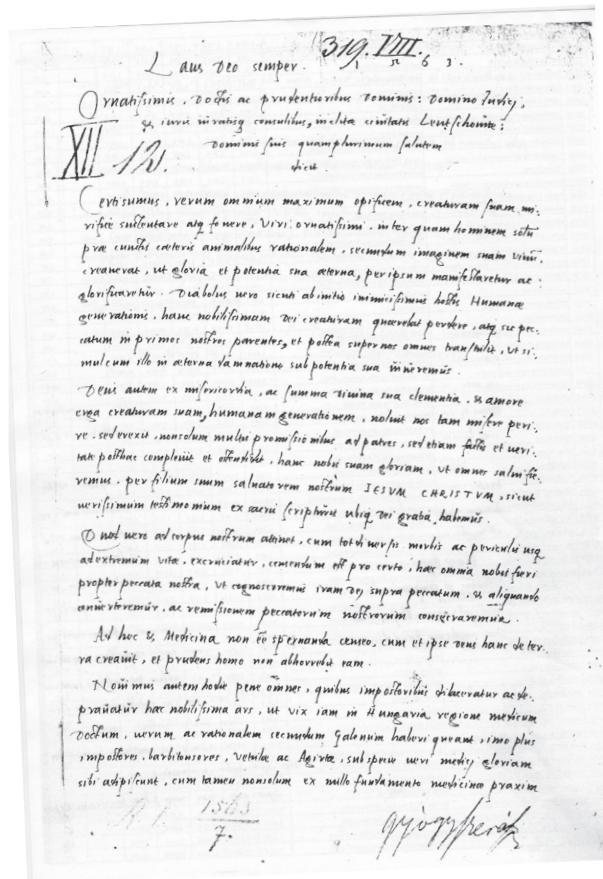 319. VIII.
Laus Deo semper. 1563.
Ornatissimis, Doctis ac prudentioribus Dominis: Domino Judici,
& iuratisq consulibus, inclitæ ciuitatis Leutschouiæ:
XII 12. Dominis suis quamplurimum salutem
dicit
Certissimus, verum omnium maximum opificem, creaturam suam mi-
rifice sustentare atq fouere, Viri ornatissimi. inter quam hominem solũ
præ cunctis cæteris animalibus rationalem, secundum imaginem suam
creauerat, ut gloria et potentia sua æterna, per ipsum manifestaretur ac
glorificaretur. Diabolus uero sicuti ab initio inimicissimus hostis Humanæ
generationis, hanc nobilissimam Dei creaturam quærebat perdere, atq sic pec-
catum in primos nostros parentes, et postea super nos omnes transtulit, ut si-
mul cum illo in æterna damnatione sub potentia sua
Deus autem ex misericordia, ac summa diuina sua clementia, & amore
erga creaturam suam, humanam generationem, noluit nos tam misere peri-
re. sed erexit, non solum multis promissionibus ad patres, sed etiam factis et ueri-
tate posthac compleuit et ostendit, hanc nobis suam gloriam, ut omnes salui fie-
remus. per filium suum saluatorem nostrum IESUM CHRISTVM, sicut
uerissimum testimonium ex sacris scripturis ubiq dei gratia habemus.
Quod uero ad corpus nostrum attinet, cum tot diuersis morbis ac periculis usq
ad extremum vitæ, excruciatur, cernendum est pro certo, hæc omnia nobis fieri
propter peccata nostra, ut cognosceremus iram Dei supra peccatum, & aliquando
auerteremur, ac remissionem peccatorum nostrorum
Ad hoc & Medicina non ee͂ spernenda censeo, cum et ipse Deus hanc de ter-
ra creauit, et prudens homo non abhorrebit eam.
Nouimus autem hodie pene om̃es, quibus impostoribus dilaceratur ac de-
prauatur hæc nobilissima ars, ut vix iam in Hungaria regione medicum
Doctum, uerum ac rationalem secundum Galenum haberi queant, imo plus
impostores, barbitonsores, vetulæ ac Agirtæ, sub specie ueri medici gloriam
sibi adipiscunt, cum tamen non solum ex nullo fundamento medicinæ praxim
1563
7.